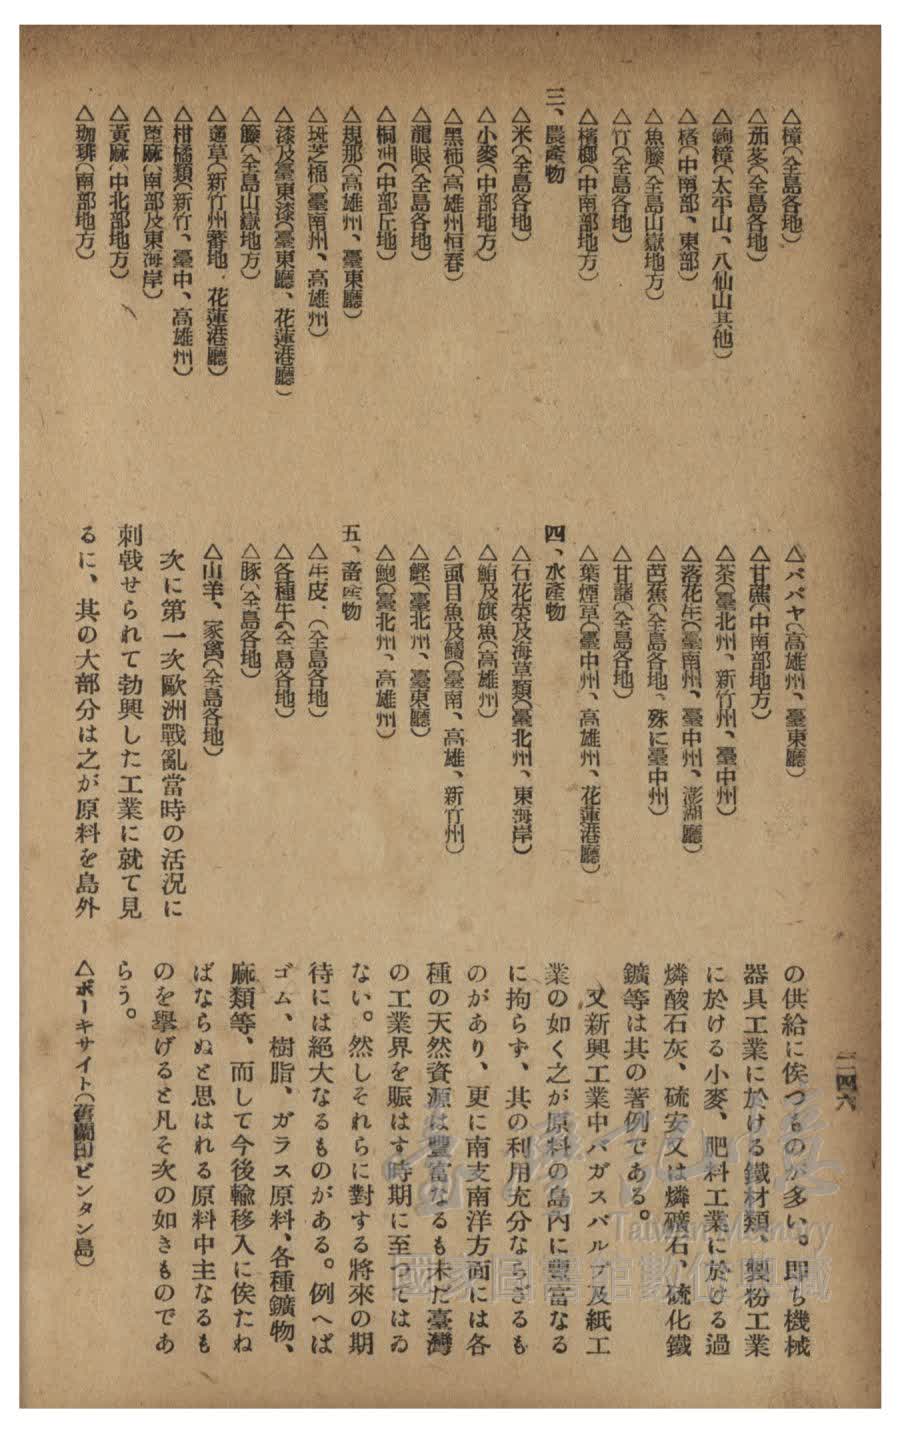 二四六
△樟(全島各地)
△茄苳(全島各地)
△鈎樟(太平山、八仙山其他)
△楮(中南部、東部)
△魚籐(全島山嶽地方)
△竹(全島各地)
△檳榔(中南部地方)
三、農產物
△米(全島各地)
△小麥(中部地方)
△黑柿(高雄州恒春)
△龍眼(全島各地)
△桐油(中部丘地)
△規那(高雄州、臺東廳)
△斑芝棉(臺南州、高雄州)
△漆及臺東漆(臺東廳、花蓮港廳)
△籐(全島山嶽地方)
△蓪草(新竹州蕃地、花蓮港廳)
△柑橘類(新竹、臺中、高雄州)
△蓖麻(南部及東海岸)
△黃麻(中北部地方)
△珈琲(南部地方)
△パパヤ(高雄州、臺東廳)
△甘蔗(中南部地方)
△茶(臺北州、新竹州、臺中州)
△落花生(臺南州、臺中州、澎湖廳)
△芭蕉(全島各地、殊に臺中州)
△甘藷(全島各地)
△葉煙草(臺中州、高雄州、花蓮港廳)
四、水產物
△石花菜及海草類(臺北州、東海岸)
△鮪及旗魚(高雄州)
△虱目魚及鱶(臺南、高雄、新竹州)
△鰹(臺北州、臺東廳)
△鮑(臺北州、高雄州)
五、畜產物
△牛皮、(全島各地)
△各種牛(全島各地)
△豚(全島各地)
△山羊、家禽(全島各地)
次に第一次歐洲戰亂當時の活況に
刺戟せられて勃興した工業に就て見
るに、其の大部分は之が原料を島外
の供給に俟つものが多い。即ち機械
器具工業に於ける鐵材類、製粉工業
に於ける小麥、肥料工業に於ける過
燐酸石灰、硫安又は燐礦石、硫化鐵
鑛等は其の著例である。
又新興工業中バガスパルプ及紙工
業の如く之が原料の島內に豐富なる
に拘らず、其の利用充分ならざるも
のがあり、更に南支南洋方面には各
種の天然資源は豐富なるも未だ臺灣
の工業界を賑はす時期に至つてはゐ
ない。然しそれらに對する將來の期
待には絕大なるものがある。例へば
ゴム、樹脂、ガラス原料、各種鑛物、
麻類等、而して今後輸移入に俟たね
ばならぬと思はれる原料中主なるも
のを擧げると凡そ次の如きものであ
らう。
△ボーキサイト(舊蘭印ビンタン島)
Taiwan Memory
國家圖書館數位典藏